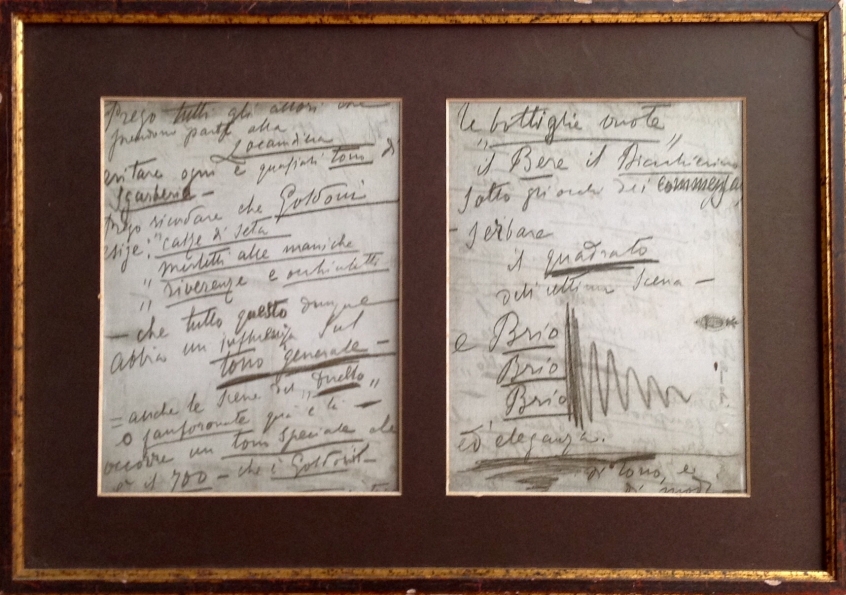 Prego tutti gli attori che
prendono parte alla
Locandiera
evitare ogni e qualsiasi tono di
sgarberia -
Prego ricordare che Goldoni
esige: "calze di seta
" merletti alle maniche
" Riverenze e occhialetti
- che tutto questo dunque
abbia un influenza sul
tono generale -
= anche le scene del "Duello"
o fanfaronate qua e là -
occorre un tono speciale che
è il 700 - che è Goldoni -
le bottiglie vuote
" il Bere il "
sotto gli occhi dei
- serbare
il quadrato
dell'ultima scena -
e Brio
Brio
Brio
ed eleganza.
di tono, e
di modi